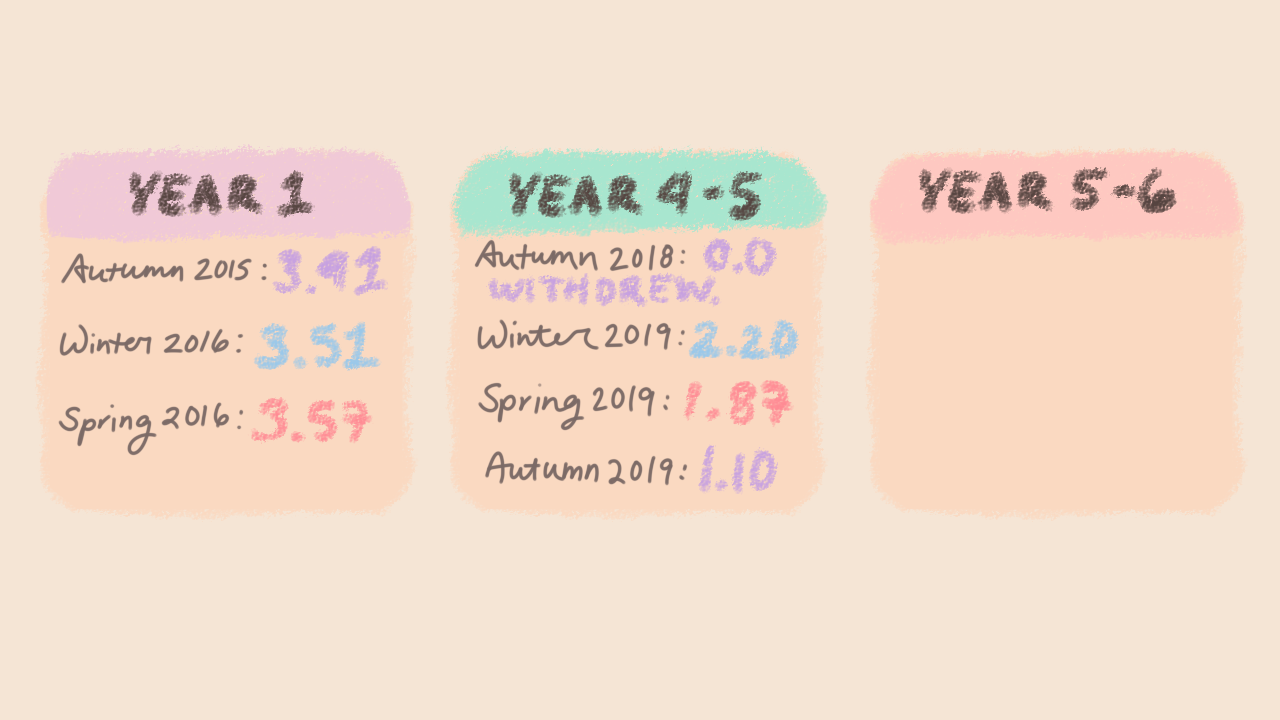 YEAR 1
Autumn 2015: 3.91
Winter 2016: 3.51
Spring 2016: 3.57
YEAR 4-5
Autumn 2018: 0.0
WITHDREW.
Winter 2019: 2.20
Spring 2019: 1.87
Autumn 2019: 1.10
YEAR 5-6